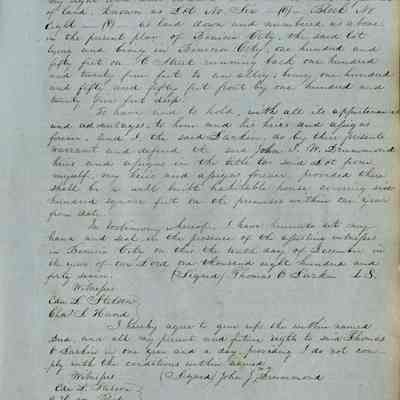 of land, known as Lot No Six (6) Block No
Eight (8) as laid down and numbered as above
in the present plan of Benicia City, the said lot
lying and being in Benicia City, one hundred and
fifty feet on C Street running back one hundred
and twenty five feet to an alley, being one hundred
and fifty and fifty feet front by one hundred and
twenty five feet deep.
To have and to hold, with all its appurtenances
and advantages, to him and his heirs and assigns
forever. And I, the said Larkin, do by these presents
warrant and defend the said John J. W. Drummond
heirs and assigns in the title to said Lot from
myself, my heirs and assigns forever, provided there
shall be a well built habitable house, covering six
hundred square feet on the premises within one year
from date.
In testimony whereof, I have hereunto set my
hand and seal in the presence of the assisting witnesses
in Benicia City on this the tenth day of December in
the year of our Lord one thousand eight hundred and
forty seven. (Signed) Thomas O Larkin L.S.
Witness
Edw. L. Stetson
Chas L
I hereby agree to give up the within named
Deed, and all my present and future rights to said Thomas
O Larkin in one year and a day, providing I do not com-
ply with the conditions within named.
Witness (Signed) John J. Drummond
Edw. L. Stetson